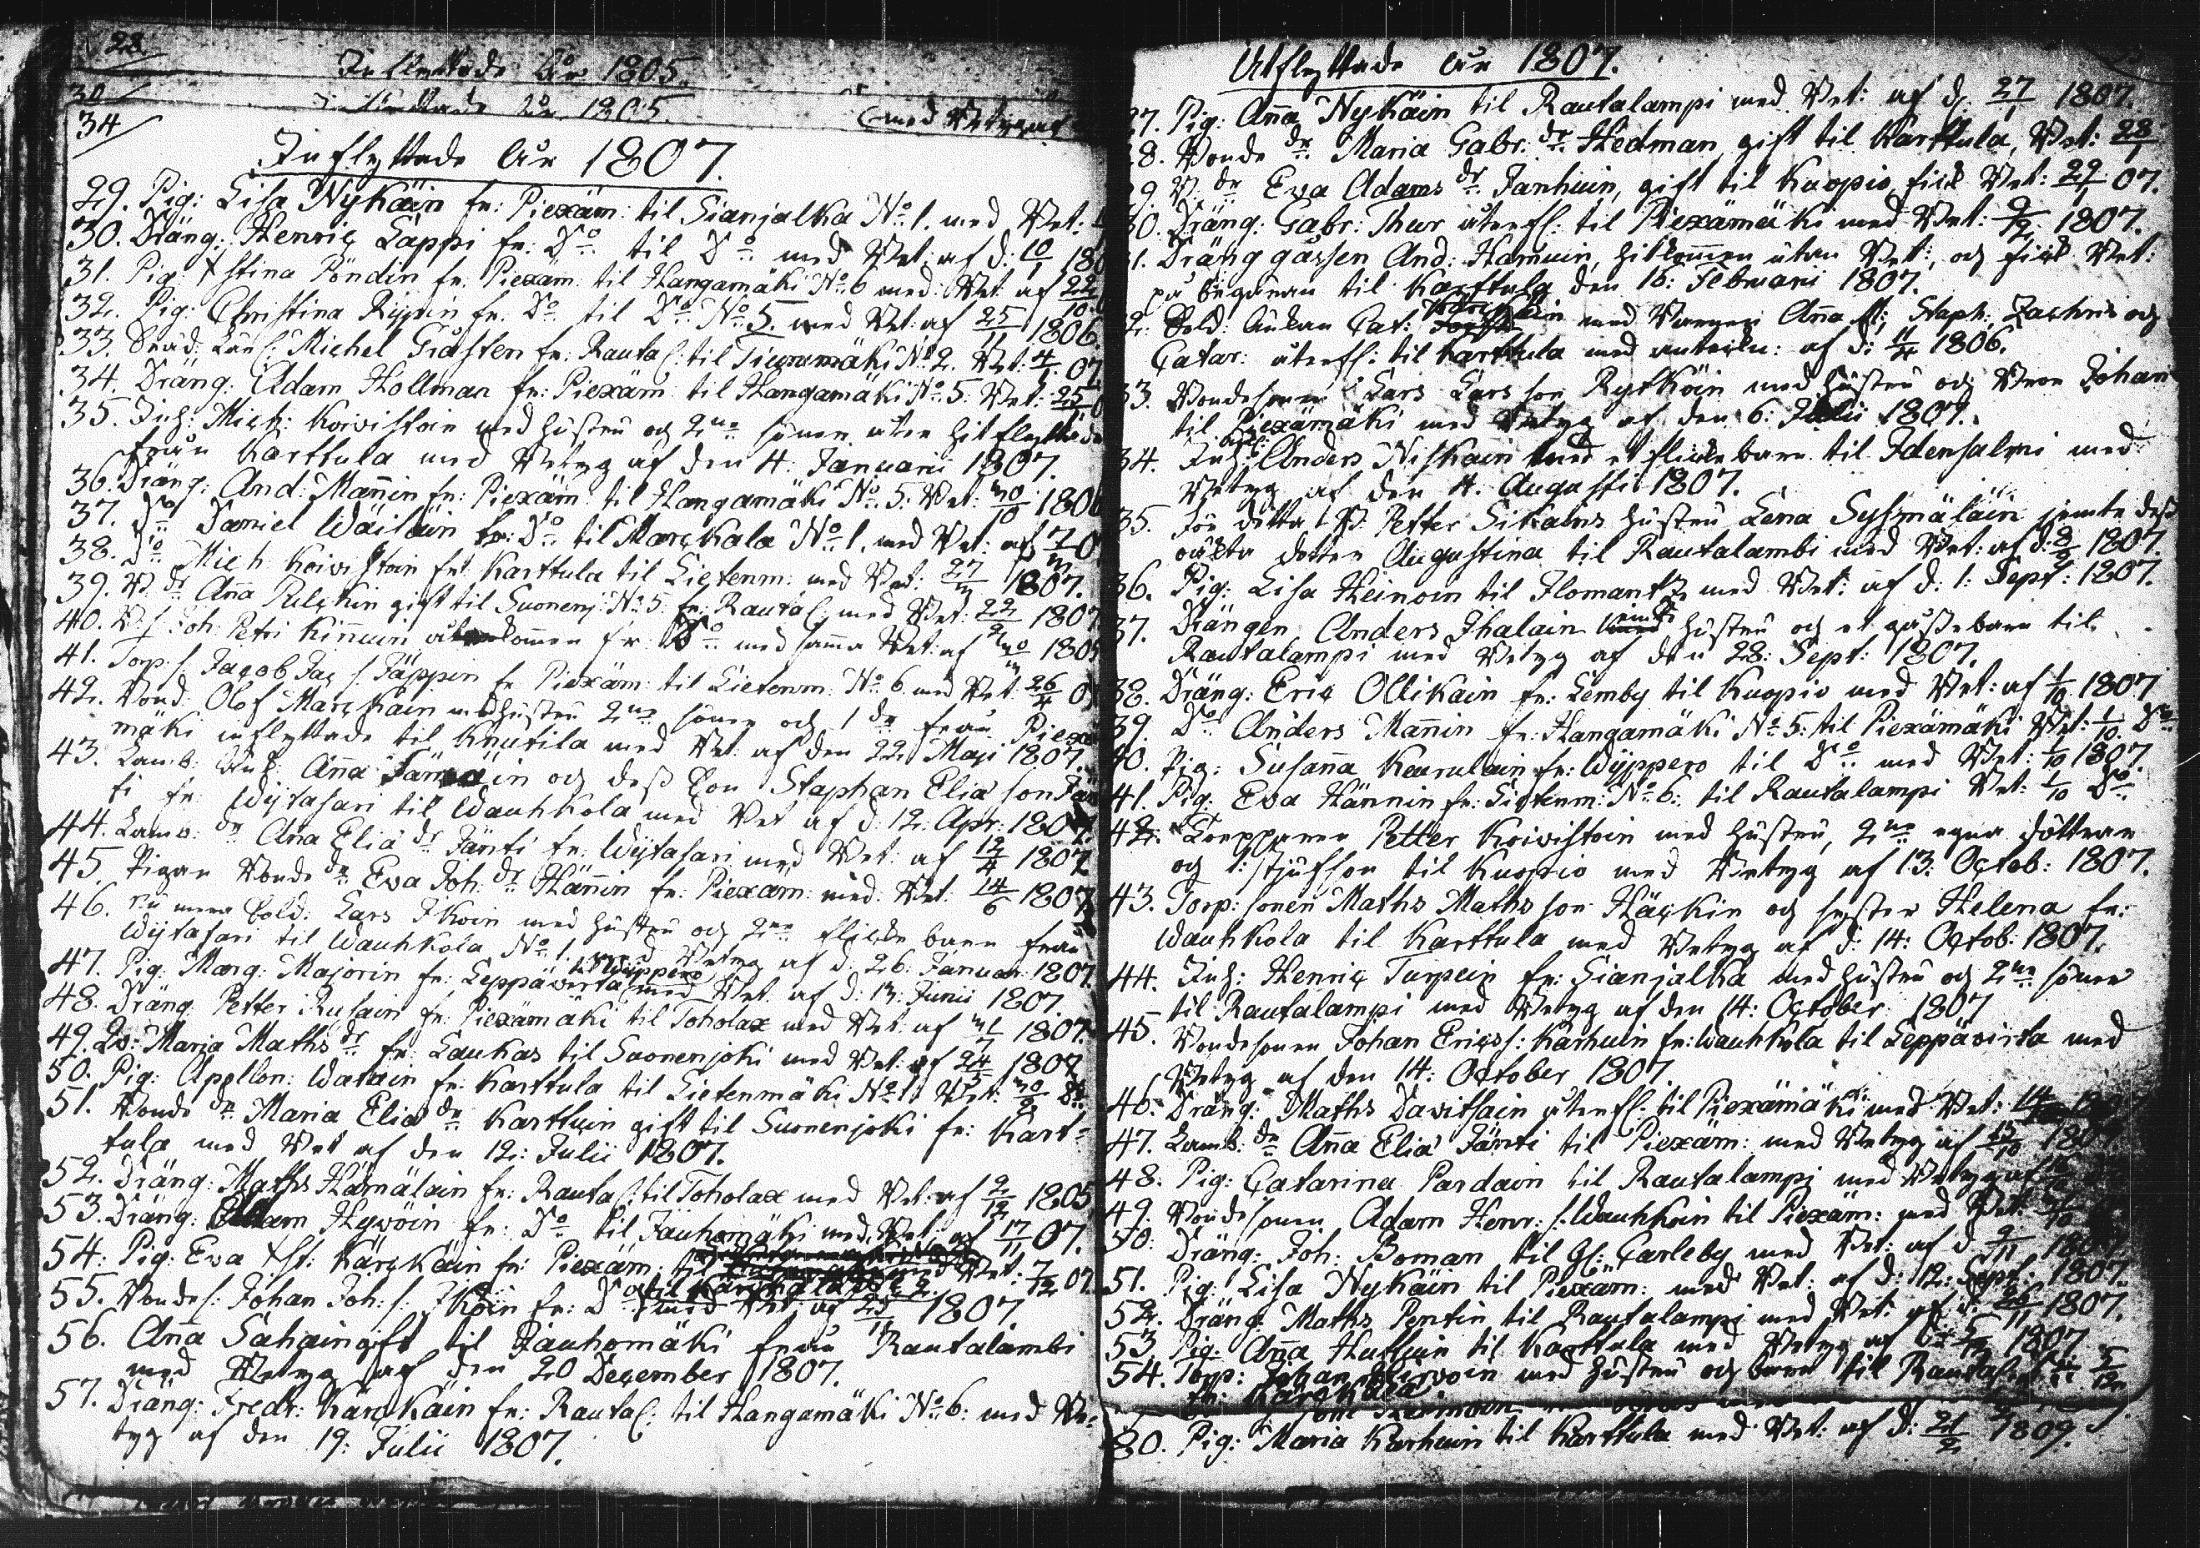 28
Inflyttade År 1805.
30
Inflyttade År 1805. med Betyg af
34
Inflyttade År 1807.
29. Pig: Lisa Nykäin fr: Piexäm: til Sianjalka No 1. med Bet:
30. Dräng: Henric Lappi fr: Do til Do med Bet: af d: 10/1 180
31. Pig: Xstina Pöndin fr: Piexäm: til Hangamäki No 6 med Bet: af 22/10
32. Pig: Christina fr: Do til Do No 5. med Bet: af 25/11 1806.
33. Michel Gråsten fr: Rautal: til No 2. Bet: 4/1 07
34. Dräng: Adam Hollman fr: Piexäm: til Hangamäki No 5. Bet: 25
35. Inh: Mich: Koivistoin med hustru och 2ne söner åter hitflyttade
från Karttula med Betyg af den 4: Januarii 1807.
36. Dräng: And: Mannin fr: Piexäm: til Hangamäki No 5. Bet: 30/10 1806
37. Do Daniel Wäiläin fr: Do til Marckala No 1. med Bet: af
38. Do Mich: Koivistoin fr: Karttula til Lietenm: med Bet: 27 1807.
39. B.dr Anna Pulckin gift til Suonenj: No 5. fr: Rautal: med Bet: 22 1807
40. B.s. Joh: Petri Kinnuin fr: Do med samma Bet: af 1805
41. Torp: s. Jacob Jac: s. Jäppin fr: Piexäm: til Lietenm: No 6. med Bet: 26/4
42. Bond: Olof Marckain med hustru 2ne söner och 1 dr från Piexä
mäki inflyttade til Knutila med Bet: af den 22: Maji 1807.
43. Lamb: Anna och dess Son Staphan Elia son Jän
ti fr: Wijtasari til Wauhkola med Bet af d: 12: Apr: 1807
44. Lamb: dr Anna Elia dr Jänti fr: Wijtasari med Bet: af 12/4 1807
45. Pigan Bonde dr Eva Joh: dr Hännin fr: Piexäm: med Bet: 14/6 1807
46. Sold: Lars Ikoin med hustru och 2ne flicke barn från
Wijtasari til Wauhkola No 1. med Betyg af d: 26: Januar: 1807
47. Pig: Marg: Majorin fr: Leppävirta til Wäppero med Bet: af d: 13: Junii 1807.
48. Dräng: Petter Rusain fr: Piexämäki til Toholax med Bet: af 1807.
49. Maria Maths dr fr: Laukas til Suonenjoki med Bet: af 24 1807
50. Pig: Apollon: Watain fr: Karttula til Lietenmäki No 1. Bet: 30 Do
51. Bonde dr Maria Elia dr Karttuin gift til Suonenjoki fr: Kart-
tula med Bet af den 12: Julii 1807.
52. Dräng: Maths Hämäläin fr: Rautal: til Toholax med Bet: af 9/12 1805
53. Dräng: Adam Hywöin fr: Do til Jauhomäki med Bet: af 17/11 07.
54. Pig: Eva Xst: Kärckäin fr: Piexäm: til Bet: 7/12 07.
55. Bondes: Johan Joh: s. Ikoin fr: Do med Bet: af 25/11 1807.
56. Anna Sahain gift til Jauhomäki från Rautalambi
med Betyg af den 20 December 1807.
57. Dräng: Fredr: Kärckäin fr: Rautal: til Hangamäki No 6: med Be-
tyg af den 19: Julii 1807.
Utflyttade År 1807.
27. Pig: Anna Nykäin til Rautalampi med Bet: af d: 27/1 1807.
28. Bonde dr Maria Gabr: dr Hedman gift til Karttula, Bet: 28/1
29. B. dr Eva Adams dr Janhuin, gift til Kuopio, fick Bet: 29/1 07.
30. Dräng: Gabr: Thur återfl: til Piexämäki med Bet: 9/2 1807.
31. Dräng gåssen And: Hämuin, hitkommen utan Bet:, och fick Bet:
på begäran til Karttula den 16: Februarii 1807.
32. Sold: med Anna M:, Staph:, Zachris och
Catar: återfl: til Karttula med af d: 11/4 1806.
33. Bondesonen Lars Lars son Rytköin med hustru och Johan
til Piexämäki med Betyg af den 6: Julii 1807.
34. Inh: Anders Niskain med et flicke barn til Idensalmi med
Betyg af den 4. Augusti 1807.
35. Petter hustru Lena Sysmäläin jemte dess
dotter Augustina til Rautalambi med Bet: af d: 8 1807.
36. Pig: Lisa Heinoin til Ilomantz med Bet: af d: 1: Sept: 1807.
37. Drängen Anders Ihalain med hustru och et gåsse barn til
Rautalampi med Betyg af den 28: Sept: 1807.
38. Dräng: Eric Ollikain fr: Lemby til Kuopio med Bet: af 1/10 1807
39. Do Anders Mannin fr: Hangamäki No 5: til Piexämäki Bet: 1/10 Do
40. Pig: Susanna Kaurulain fr: Wäppero til Do med Bet: 1/10 1807.
41. Pig: Eva Hännin fr: Lietenm: No 6: til Rautalampi Bet: 1/10 Do
42. Torpparen Petter Koivistoin med hustru, 2ne egna döttrar
och 1: stjufson til Kuopio med Betyg af 13: Octob: 1807.
43. Torp: sonen Maths Maths son Häckin och syster Helena fr:
Wauhkola til Karttula med Betyg af d: 14: Octob: 1807.
44. Inh: Henric Turpein fr: Sianjalka med hustru och 2ne söner
til Rautalampi med Betyg af den 14: October 1807
45. Bondesonen Johan Ericss: Karhuin fr: Wauhkola til Leppävirta med
Betyg af den 14: October 1807
46. Dräng: Maths Davitsain återfl: til Piexämäki med Bet: 14
47. Lamb: dr Anna Elia Jänti til Piexäm: med Betyg af 1807
48. Pig: Catarina Pardain til Rautalampi med Betyg af
49. Bondesonen Adam Henr: s. Wauhkoin til Piexäm: med Bet:
50. Dräng: Joh: Boman til Gl: Carleby med Bet: af d 9/11 1807
51. Pig: Lisa Nykäin til Piexäm: med Bet: af d: 12: Sept: 1807.
52. Dräng: Maths Pentin til Rautalampi med Bet: af d: 26/11 1807.
53. Pig: Anna til Karttula med Betyg af 1807
54. Torp: Johan med hustru och barn til Rautal: 5/12
fr: Kärckälä.
80. Pig: Maria Karhuin til Karttula med Bet: af d: 21/2 1809.